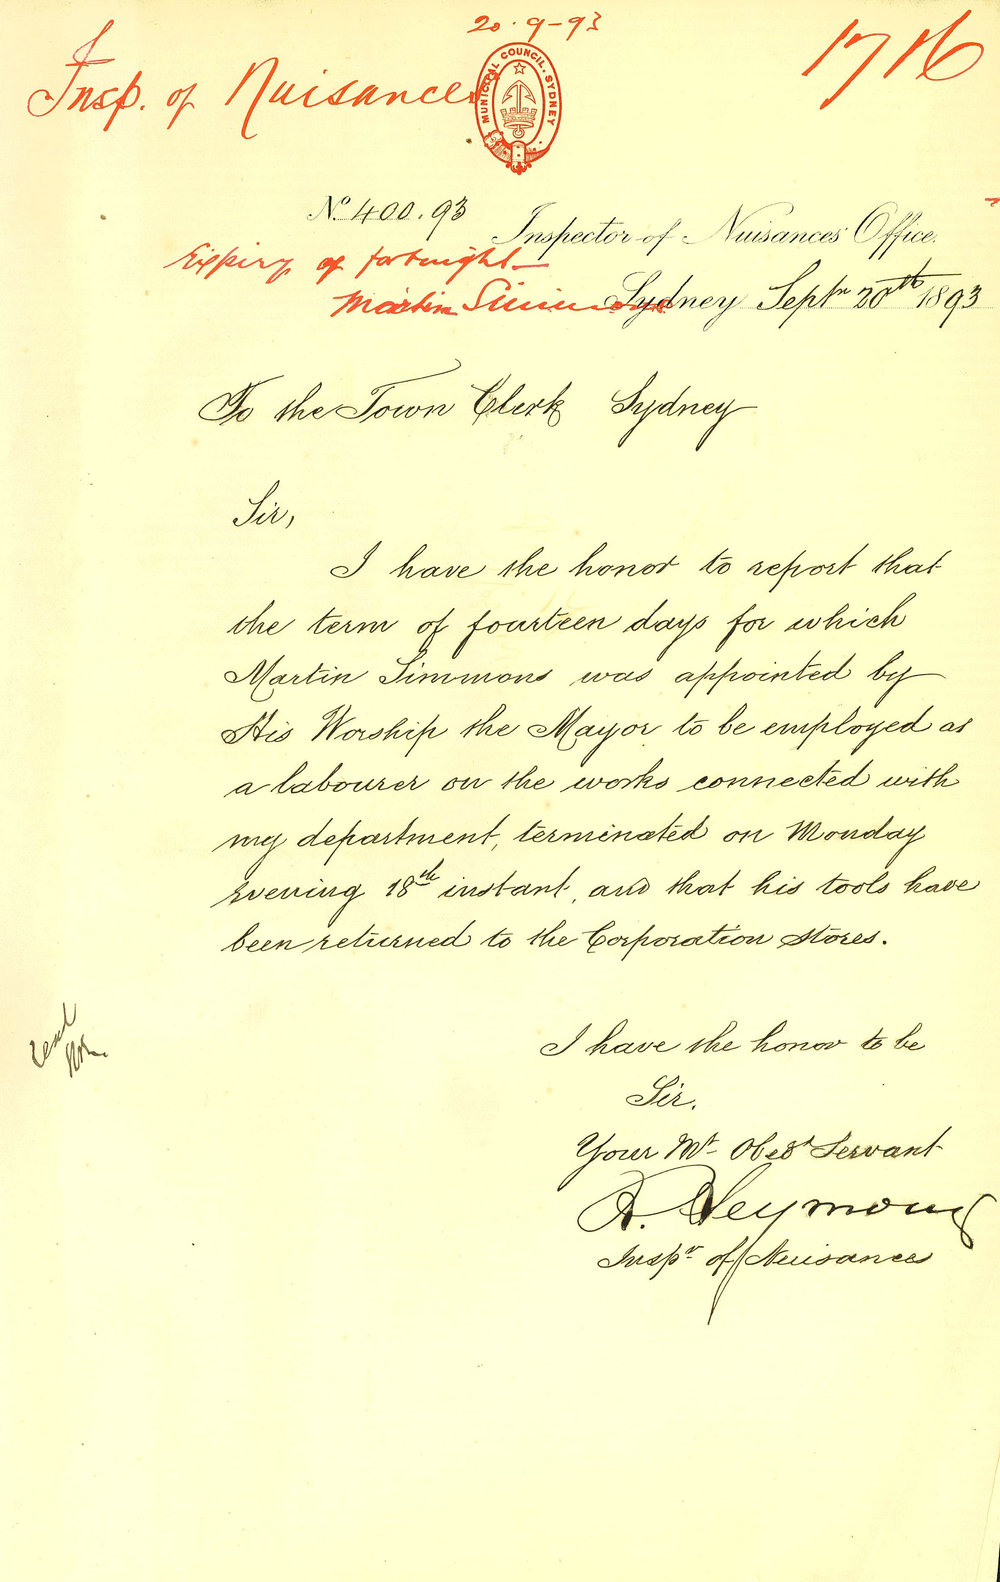 20.9-93
Insp. of Nuisances
MUNICIPAL COUNCIL. SYDNEY
1716
No. 400.93
Inspector of Nuisances Office.
Expiry of fortnight
Martin Simmons
Sydney Septr 20th 1893
To the Town Clerk Sydney
Sir,
I have the honor to report that
the term of fourteen days for which
Martin Simmons was appointed by
His Worship the Mayor to be employed as
a labourer on the works connected with
my department, terminated on Monday
evening 18th instant, and that his tools have
been returned to the Corporation Stores.
I have the honor to be
Sir.
Your Mt. Obedt Servant
R. Seymour
Inspr of Nuisances